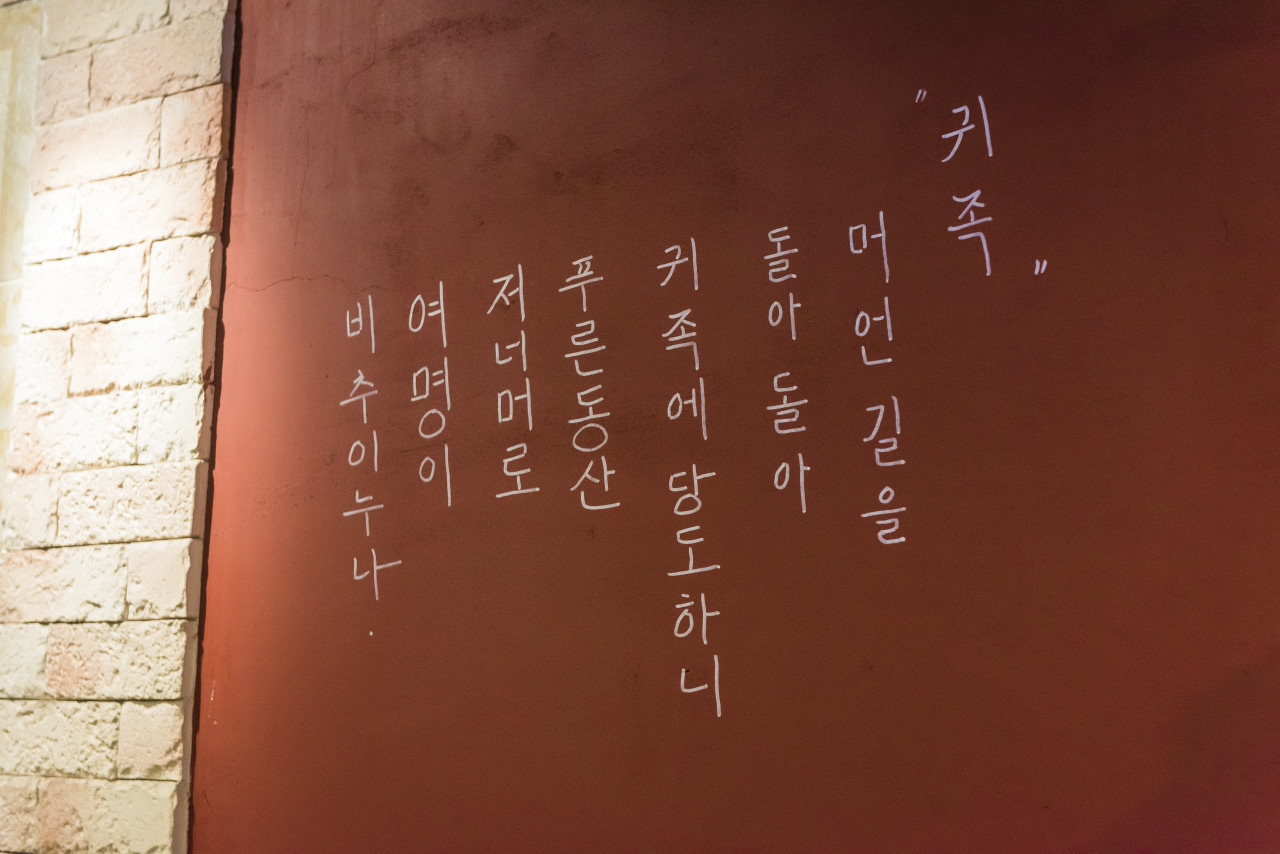 "귀족"
머언길을
돌아돌아
귀족에당도하니
푸른동산
저너머로
여명이
비추이누나.